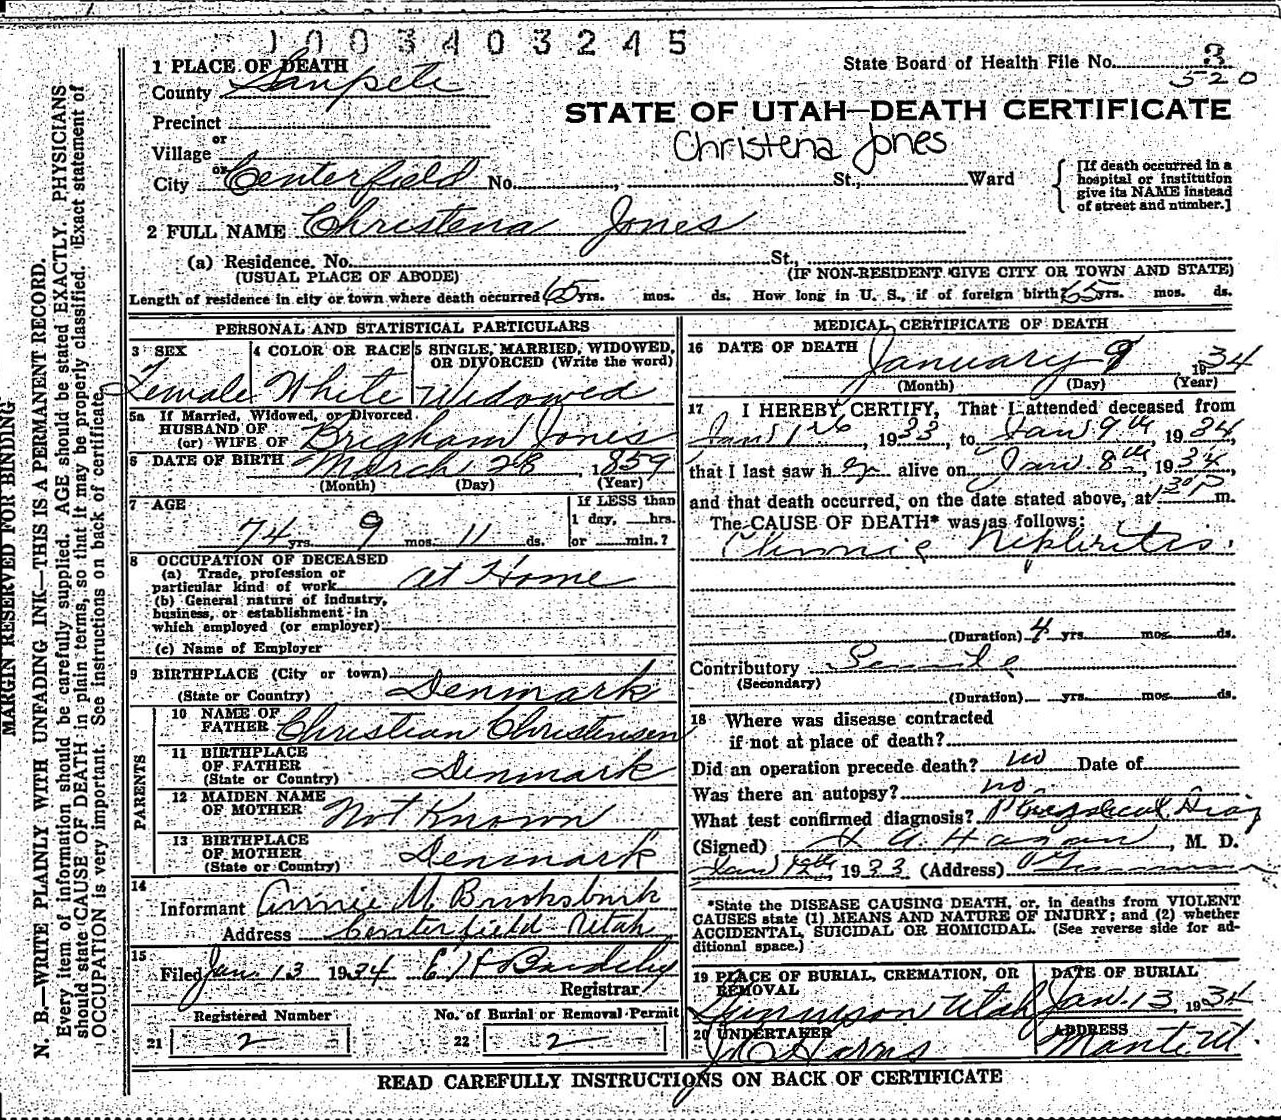 1003403245
State Board of Health File No. 3
520
1 PLACE OF DEATH
County Sanpete
STATE OF UTAH—DEATH CERTIFICATE
Precinct
Christena Jones
or
Village
or
City Centerfield No. , St., Ward
[If death occurred in a
hospital or institution
give its NAME instead
of street and number.]
2 FULL NAME Christena Jones
(a) Residence, No. St.,
(USUAL PLACE OF ABODE) (IF NON-RESIDENT GIVE CITY OR TOWN AND STATE)
Length of residence in city or town where death occurred 65 yrs. mos. ds. How long in U. S., if of foreign birth? 65 yrs. mos. ds.
PERSONAL AND STATISTICAL PARTICULARS
3 SEX 4 COLOR OR RACE 5 SINGLE, MARRIED, WIDOWED,
OR DIVORCED (Write the word)
Female White Widowed
5a If Married, Widowed, or Divorced
HUSBAND OF
(or) WIFE OF Brigham Jones
6 DATE OF BIRTH March 28, 1859
(Month) (Day) (Year)
7 AGE If LESS than
1 day, hrs.
74 yrs. 9 mos. 11 ds. or min.?
8 OCCUPATION OF DECEASED
(a) Trade, profession or
particular kind of work at Home
(b) General nature of industry,
business, or establishment in
which employed (or employer)
(c) Name of Employer
9 BIRTHPLACE (City or town)
(State or Country) Denmark
PARENTS
10 NAME OF
FATHER Christian Christensen
11 BIRTHPLACE
OF FATHER
(State or Country) Denmark
12 MAIDEN NAME
OF MOTHER Not Known
13 BIRTHPLACE
OF MOTHER
(State or Country) Denmark
14
Informant Annie M
Address Centerfield Utah
15
Filed Jan. 13 1934 E H
Registrar
Registered Number No. of Burial or Removal Permit
21 2 22 2
MEDICAL CERTIFICATE OF DEATH
16 DATE OF DEATH January 9, 1934
(Month) (Day) (Year)
17 I HEREBY CERTIFY, That I attended deceased from
Jan 1, 1933, to Jan 9th, 1934,
that I last saw her alive on Jan. 8th, 1934,
and that death occurred, on the date stated above, at 130 P m.
The CAUSE OF DEATH* was as follows:
Chronic Nephritis.
(Duration) 4 yrs. mos. ds.
Contributory Senile
(Secondary)
(Duration) yrs. mos. ds.
18 Where was disease contracted
if not at place of death?
Did an operation precede death? no Date of
Was there an autopsy? no.
What test confirmed diagnosis?
(Signed) Hagan, M. D.
Jan 12th 1933 (Address)
*State the DISEASE CAUSING DEATH, or, in deaths from VIOLENT
CAUSES state (1) MEANS AND NATURE OF INJURY; and (2) whether
ACCIDENTAL, SUICIDAL OR HOMICIDAL. (See reverse side for ad-
ditional space.)
19 PLACE OF BURIAL, CREMATION, OR
REMOVAL
DATE OF BURIAL
Gunnison Utah Jan. 13, 1934
20 UNDERTAKER ADDRESS
Manti Ut.
READ CAREFULLY INSTRUCTIONS ON BACK OF CERTIFICATE
MARGIN RESERVED FOR BINDING
N. B.—WRITE PLAINLY WITH UNFADING INK—THIS IS A PERMANENT RECORD.
Every item of information should be carefully supplied. AGE should be stated EXACTLY. PHYSICIANS
should state CAUSE OF DEATH in plain terms, so that it may be properly classified. Exact statement of
OCCUPATION is very important. See instructions on back of certificate.